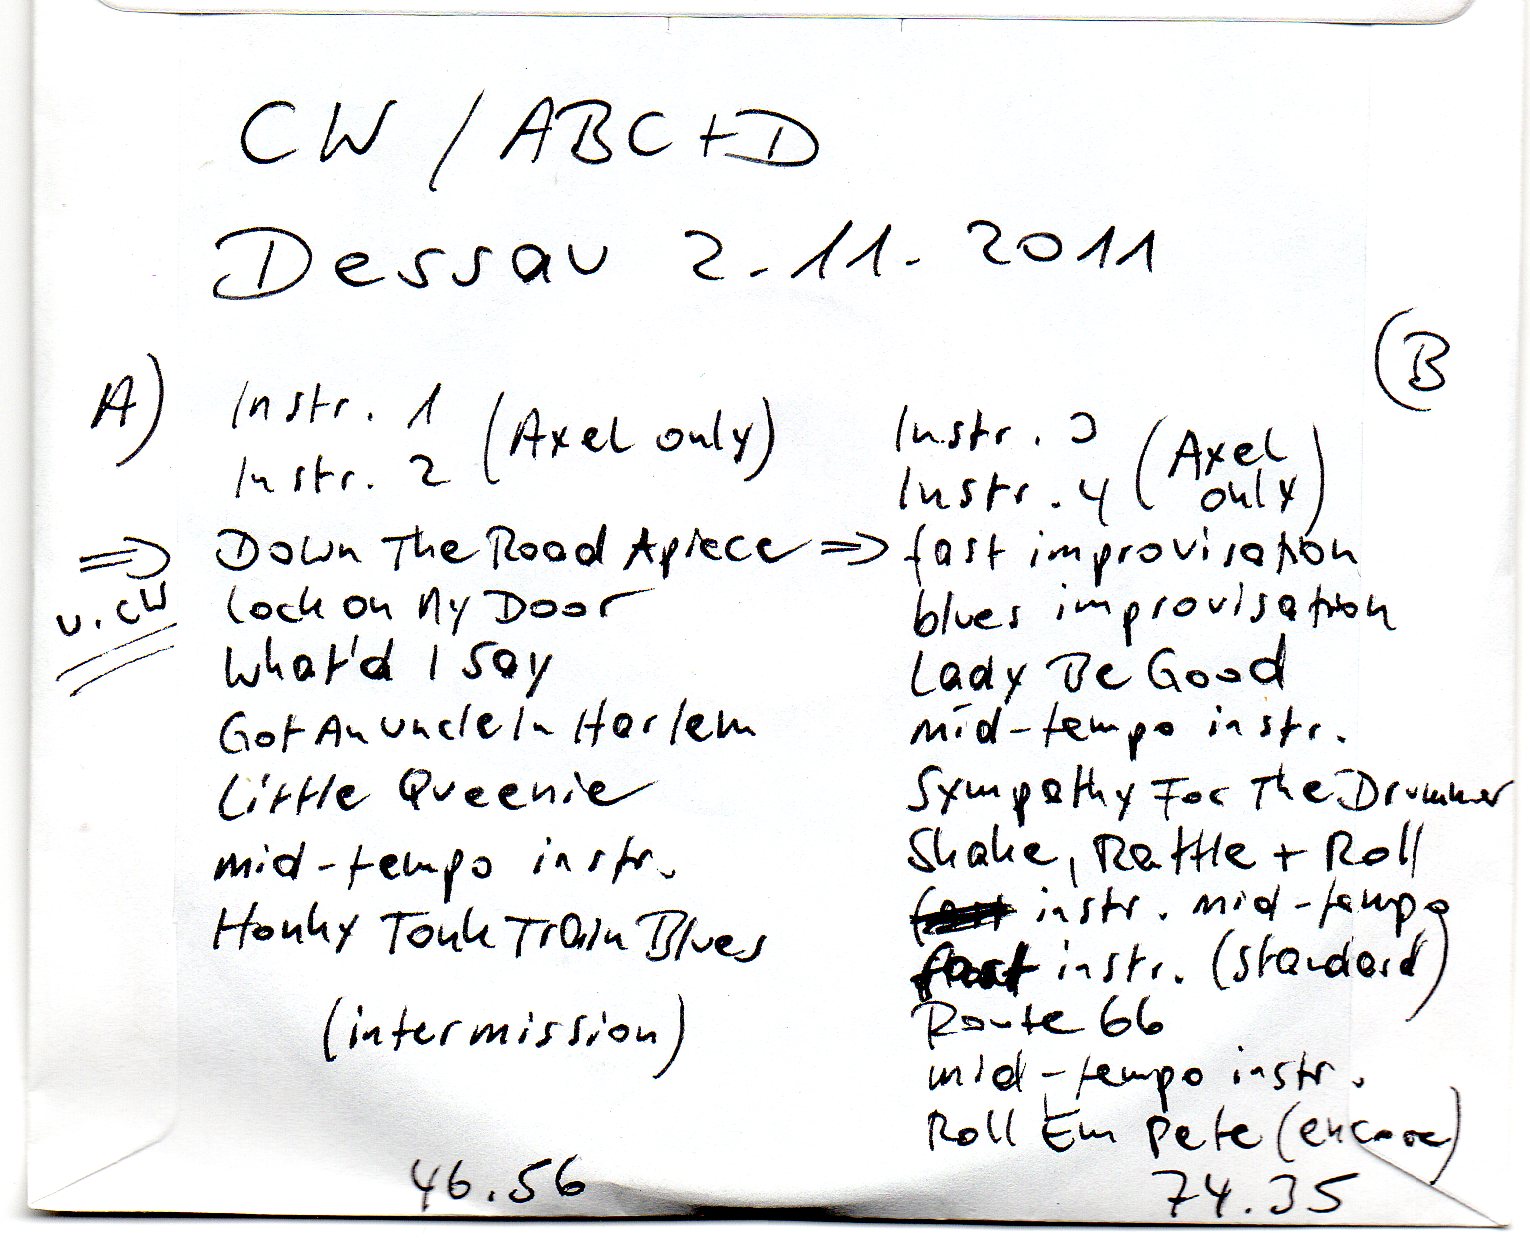 CW / ABC+D
Dessau 2.11.2011
A)
Instr. 1
Instr. 2 (Axel only)
⇒ Down The Road Apiece
u. CW
Lock on My Door
What'd I Say
Got An Uncle In Harlem
Little Queenie
mid-tempo instr.
Honky Tonk Train Blues
(intermission)
46.56
(B
Instr. 3
Instr. 4 (Axel only)
⇒ fast improvisation
blues improvisation
Lady Be Good
mid-tempo instr.
Sympathy For The Drummer
Shake, Rattle + Roll
instr. mid-tempo
fast instr. (standard)
Route 66
mid-tempo instr.
Roll Em Pete (encore)
74.35